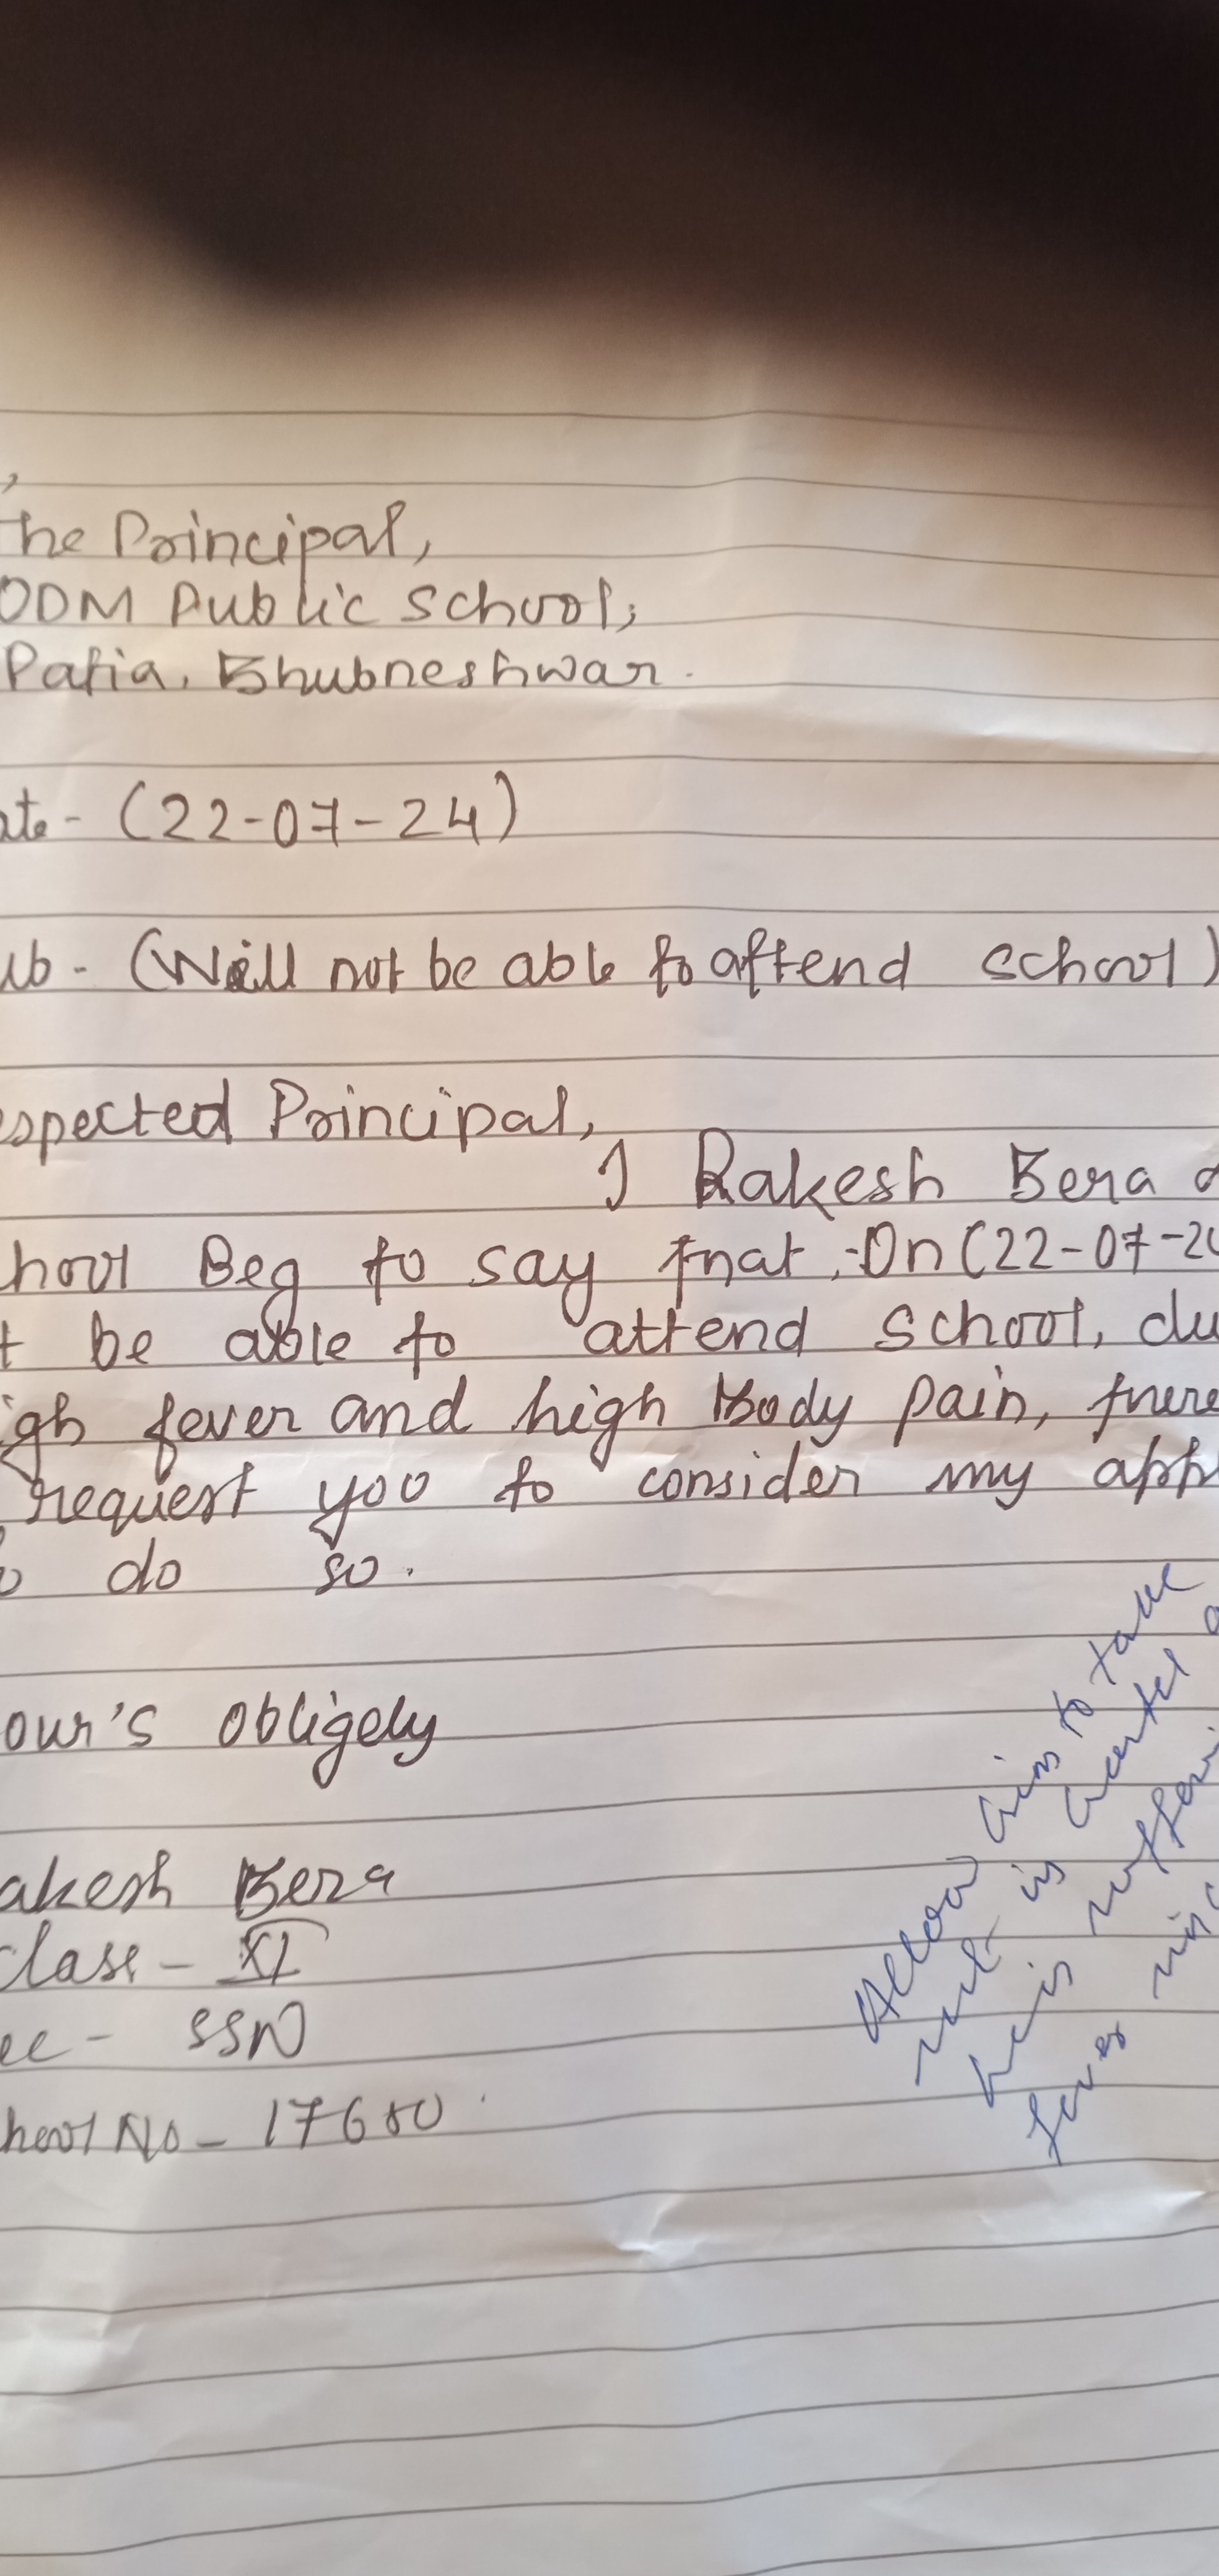 ,
he Principal,
ODM Public School,
Patia, Bhubneshwar.
ate - (22-07-24)
ub - (Will not be able to attend school)
espected Principal,
I Rakesh Bera o
hool Beg to say that, On (22-07-24
t be able to attend school, du
igh fever and high Body pain, there
request you to consider my app
o do so.
our's obligely
akesh Bera
class - XI
ec - SSN
hool No - 17680
Allow him to take
rest in hostel a
he is sufferi
fever